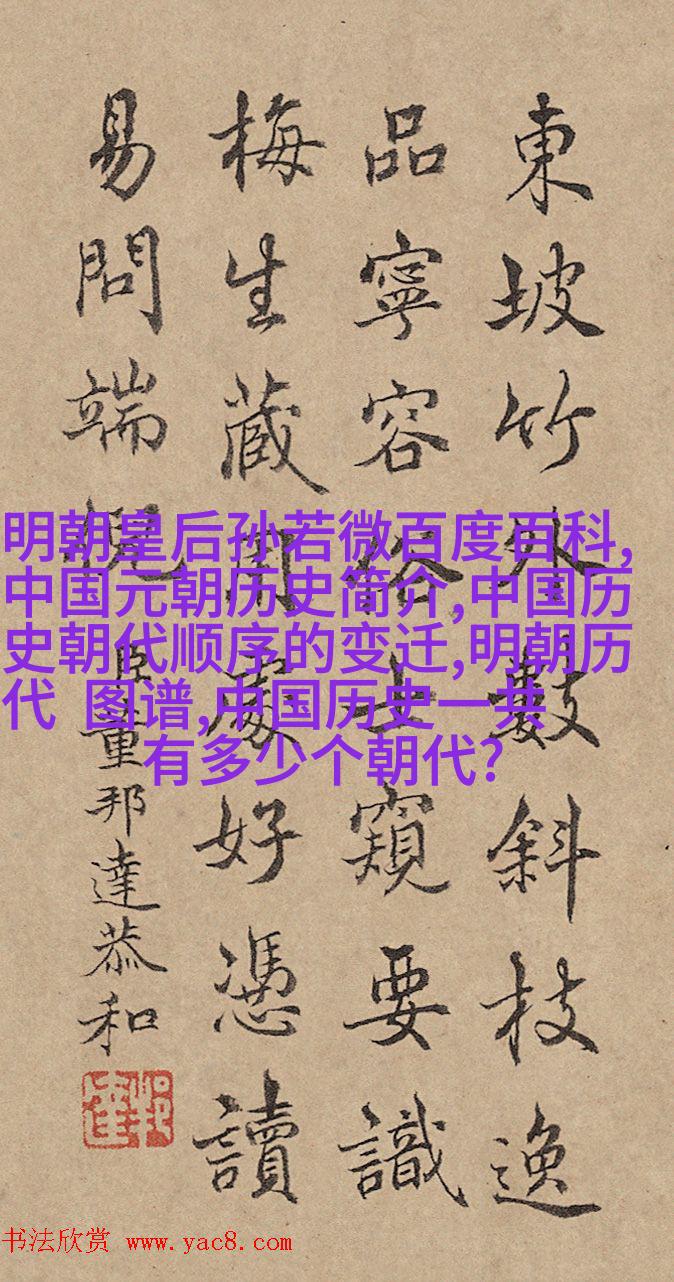 東坡竹外數斜枝逸
品寧容俗士窺要識
梅生藏用處好憑讀
易問端倪
臣董邦達恭和
明朝皇后孙若微百度百科,
中国元朝历史简介,中国历
史朝代顺序的变迁,明朝历
代 图谱,中国历史一共
有多少个朝代?
书法欣赏 www.yac8.com